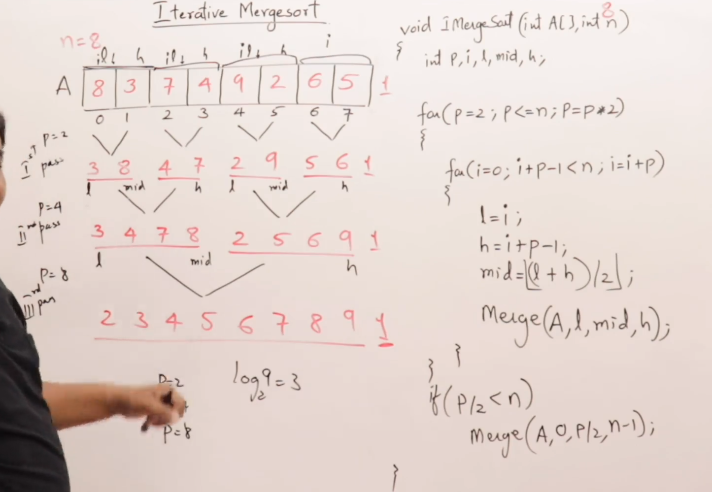 Iterative Mergesort
n=8
i l↓ h i l↓ h i l↓ h i
A 8 3 7 4 9 2 6 5 1
0 1 2 3 4 5 6 7
P=2
Iˢᵗ pass
3 8 4 7 2 9 5 6 1
l mid h l mid h
P=4
IIⁿᵈ pass
3 4 7 8 2 5 6 9 1
l mid h
P=8
IIIʳᵈ pass
2 3 4 5 6 7 8 9 1
P=2
P=8
log₂9=3
8
void IMergeSort(int A[],int n)
{
int p,i,l,mid,h;
for(p=2; p<=n; p=p*2)
{
for(i=0; i+p-1<n; i=i+p)
{
l=i;
h=i+p-1;
mid=⌊(l+h)/2⌋;
Merge(A,l,mid,h);
}
}
if(p/2<n)
Merge(A,0,p/2,n-1);
}